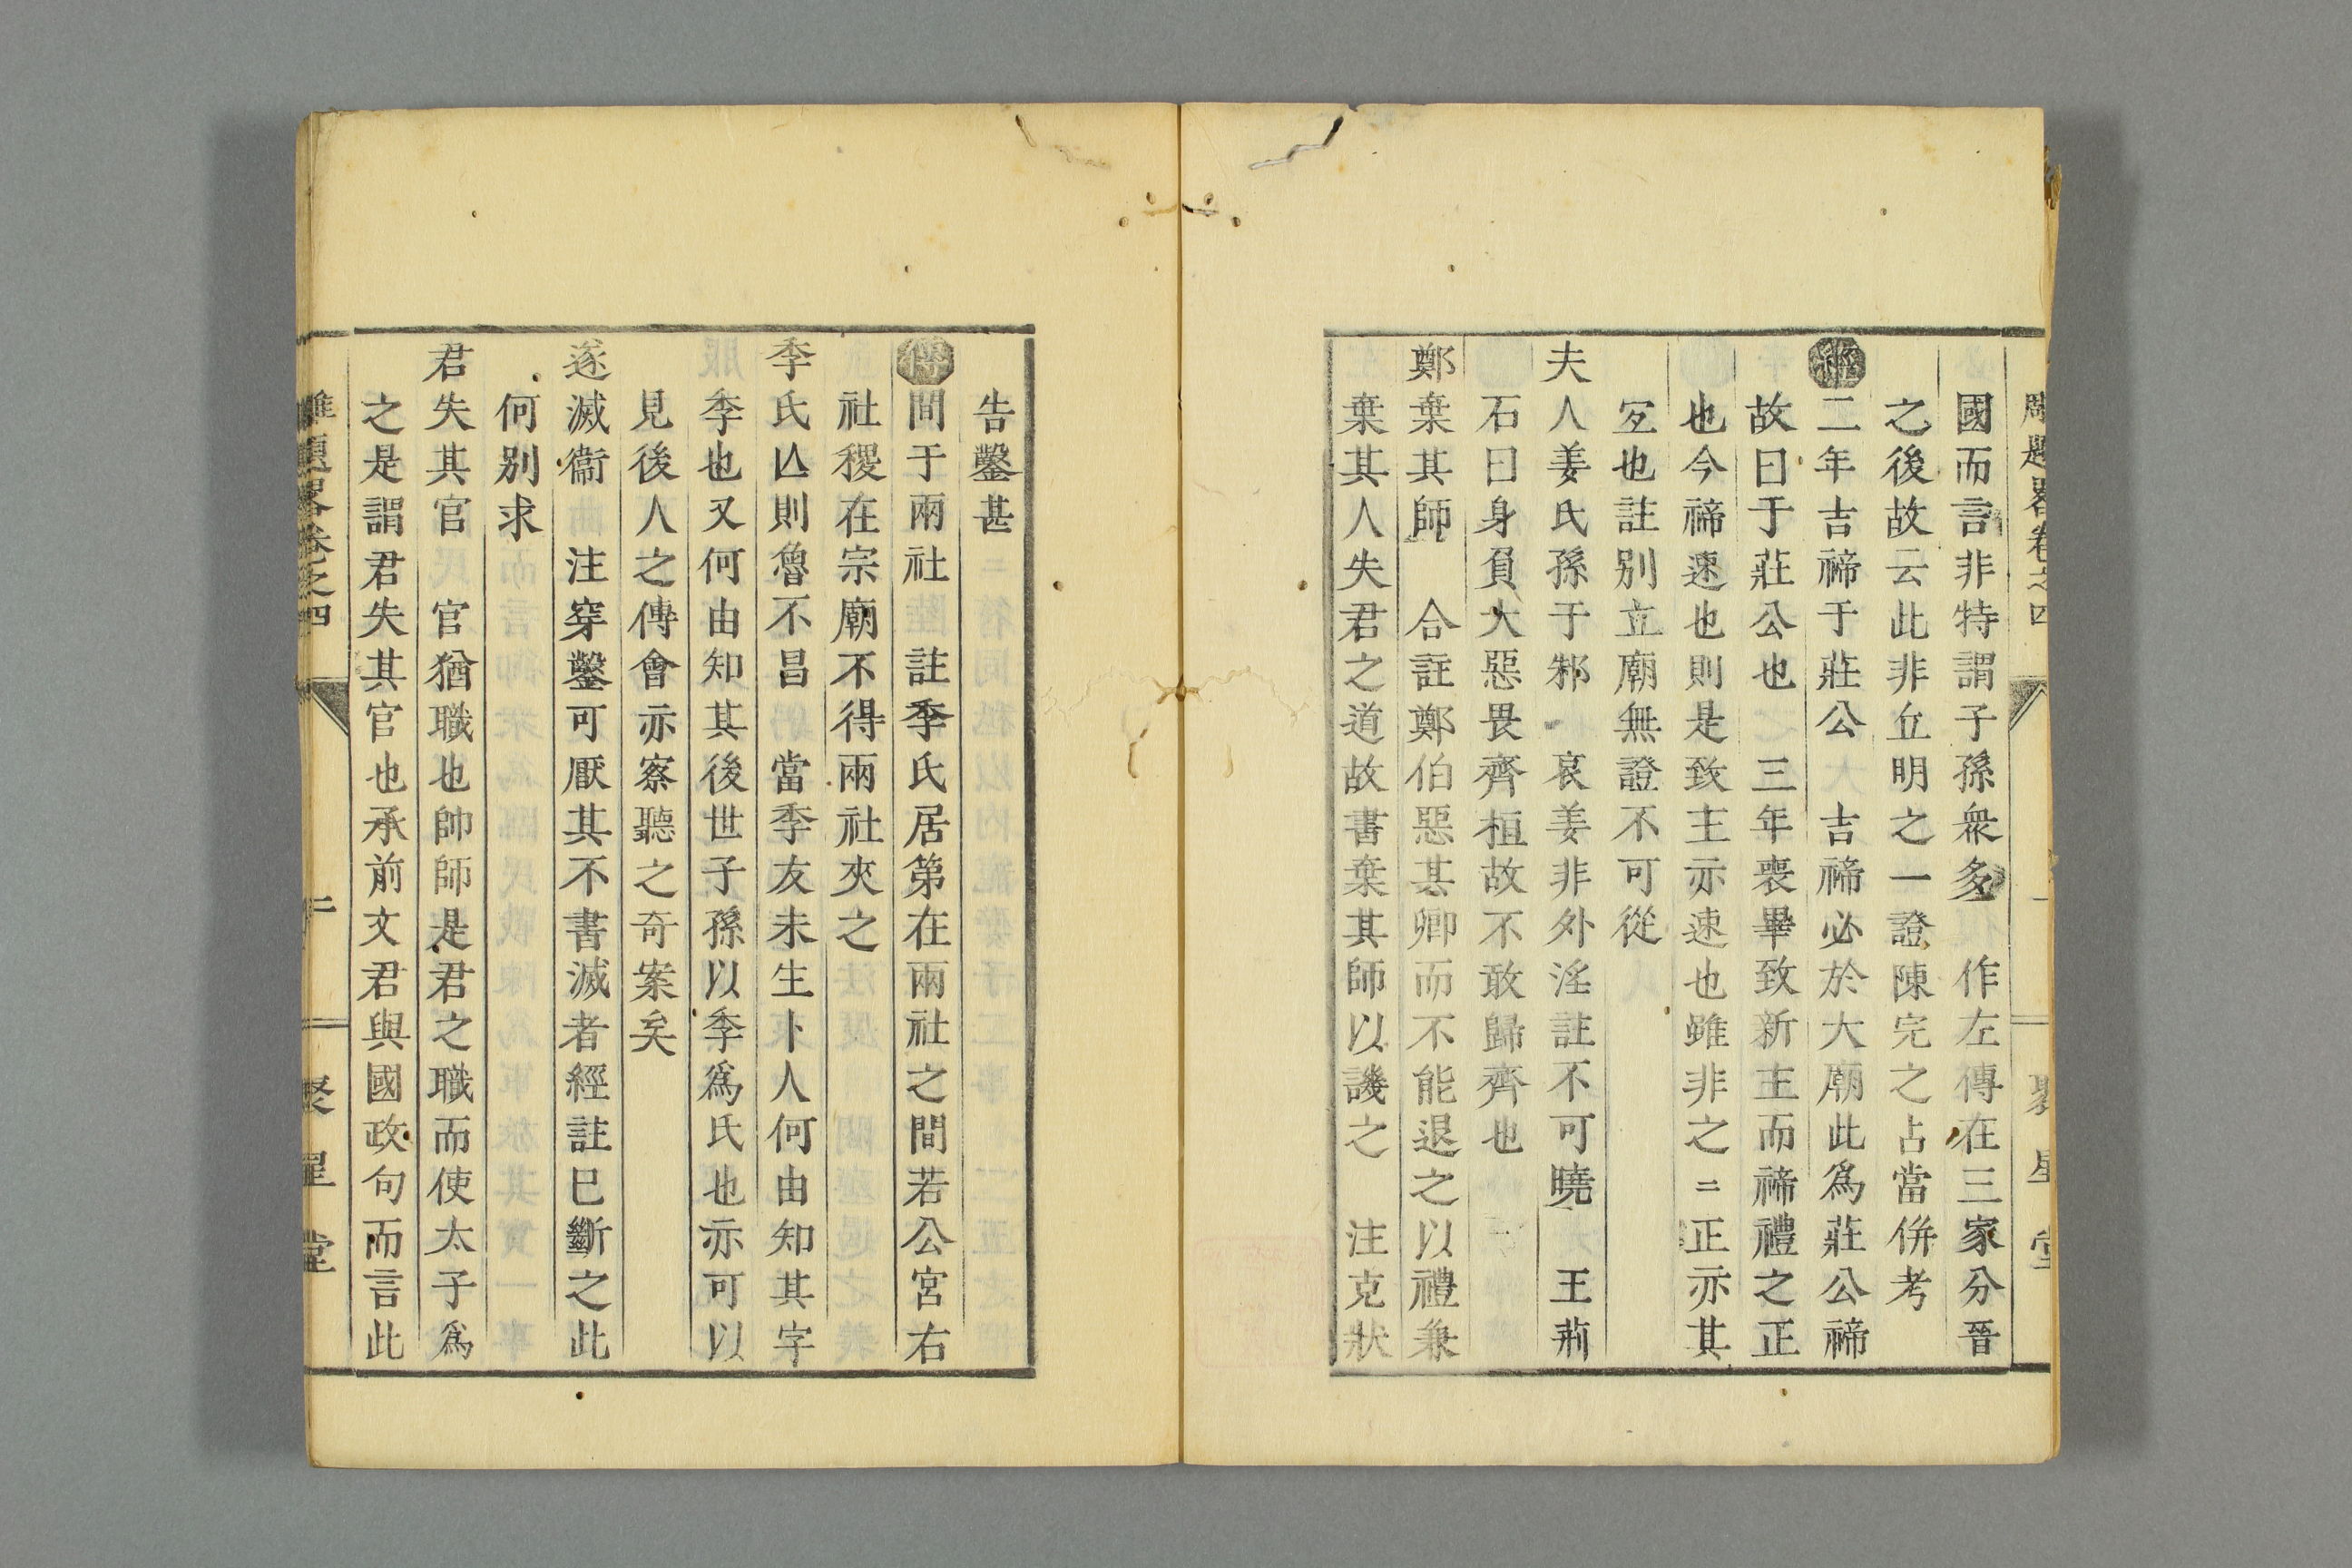 國而言非特謂子孫衆多　作左傳在三家分晉
之後故云此非丘明之一證陳完之占當併考
經二年吉禘于莊公　吉禘必於大廟此爲莊公禘
故曰于莊公也　三年喪畢致新主而禘禮之正
也今禘速也則是致主亦速也雖非之〻正亦其
冝也註別立廟無證不可從
夫人姜氏孫于邾　哀姜非外淫註不可曉　王荊
石曰身負大惡畏齊桓故不敢歸齊也
鄭棄其師　合註鄭伯惡甚卿而不能退之以禮兼
棄其人失君之道故書棄其師以譏之　注克狀
告鑿甚
傳間于兩社　註季氏居第在兩社之間若公宮右
社稷在宗廟不得兩社夾之
季氏亾則魯不昌　當季友未生卜人何由知其字
季也又何由知其後世子孫以季爲氏也亦可以
見後人之傳會亦察聽之奇案矣
遂滅衞　注穿鑿可厭其不書滅者經註已斷之此
何別求
君失其官　官猶職也帥師是君之職而使太子爲
之是謂君失其官也承前文君與國政句而言此
雕題畧卷之四　二　聚星堂